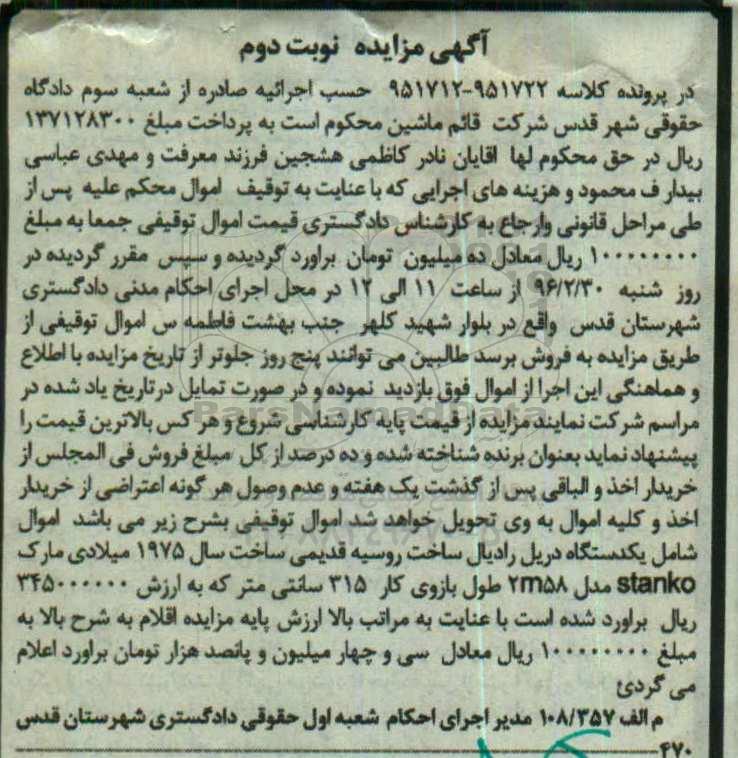 آگهی مزایده نوبت دوم
در پرونده کلاسه ۹۵۱۷۲۲-۹۵۱۷۱۲ حسب اجرائیه صادره از شعبه سوم دادگاه
حقوقی شهر قدس شرکت قائم ماشین محکوم است به پرداخت مبلغ ۱۳۷۱۲۸۳۰۰
ریال در حق محکوم لها اقایان نادر کاظمی هشجین فرزند معرفت و مهدی عباسی
بیدار ف محمود و هزینه های اجرایی که با عنایت به توقیف اموال محکم علیه پس از
طی مراحل قانونی وارجاع به کارشناس دادگستری قیمت اموال توقیفی جمعا به مبلغ
۱۰۰۰۰۰۰۰۰ ریال معادل ده میلیون تومان براورد گردیده و سپس مقرر گردیده در
روز شنبه ۹۶/۲/۳۰ از ساعت ۱۱ الی ۱۲ در محل اجرای احکام مدنی دادگستری
شهرستان قدس واقع در بلوار شهید کلهر جنب بهشت فاطمه س اموال توقیفی از
طریق مزایده به فروش برسد طالبین می توانند پنج روز جلوتر از تاریخ مزایده با اطلاع
و هماهنگی این اجرا از اموال فوق بازدید نموده و در صورت تمایل درتاریخ یاد شده در
مراسم شرکت نمایند مزایده از قیمت پایه کارشناسی شروع و هر کس بالاترین قیمت را
پیشنهاد نماید بعنوان برنده شناخته شده و ده درصد از کل مبلغ فروش فی المجلس از
خریدار اخذ و الباقی پس از گذشت یک هفته و عدم وصول هر گونه اعتراضی از خریدار
اخذ و کلیه اموال به وی تحویل خواهد شد اموال توقیفی بشرح زیر می باشد اموال
شامل یکدستگاه دریل رادیال ساخت روسیه قدیمی ساخت سال ۱۹۷۵ میلادی مارک
stanko مدل ۲m۵۸ طول بازوی کار ۳۱۵ سانتی متر که به ارزش ۳۴۵۰۰۰۰۰۰
ریال براورد شده است با عنایت به مراتب بالا ارزش پایه مزایده اقلام به شرح بالا به
مبلغ ۱۰۰۰۰۰۰۰۰ ریال معادل سی و چهار میلیون و پانصد هزار تومان براورد اعلام
می گردئ
م الف ۱۰۸/۳۵۷ مدیر اجرای احکام شعبه اول حقوقی دادگستری شهرستان قدس
۴۷۰
ParsNamadData